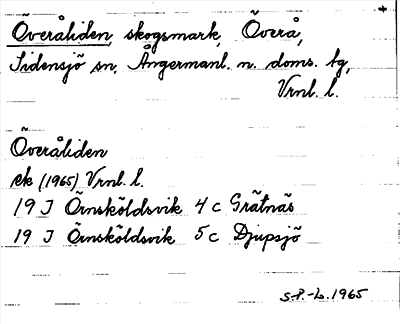 Överåliden, skogsmark, Överå,
Sidensjö sn, Ångermanl. n. doms. tg,
Vrnl. l.
Överåliden
ek (1965) Vrnl. l.
19 J Örnsköldsvik 4 c Grätnäs
19 J Örnsköldsvik 5 c Djupsjö
S-P.-L. 1965